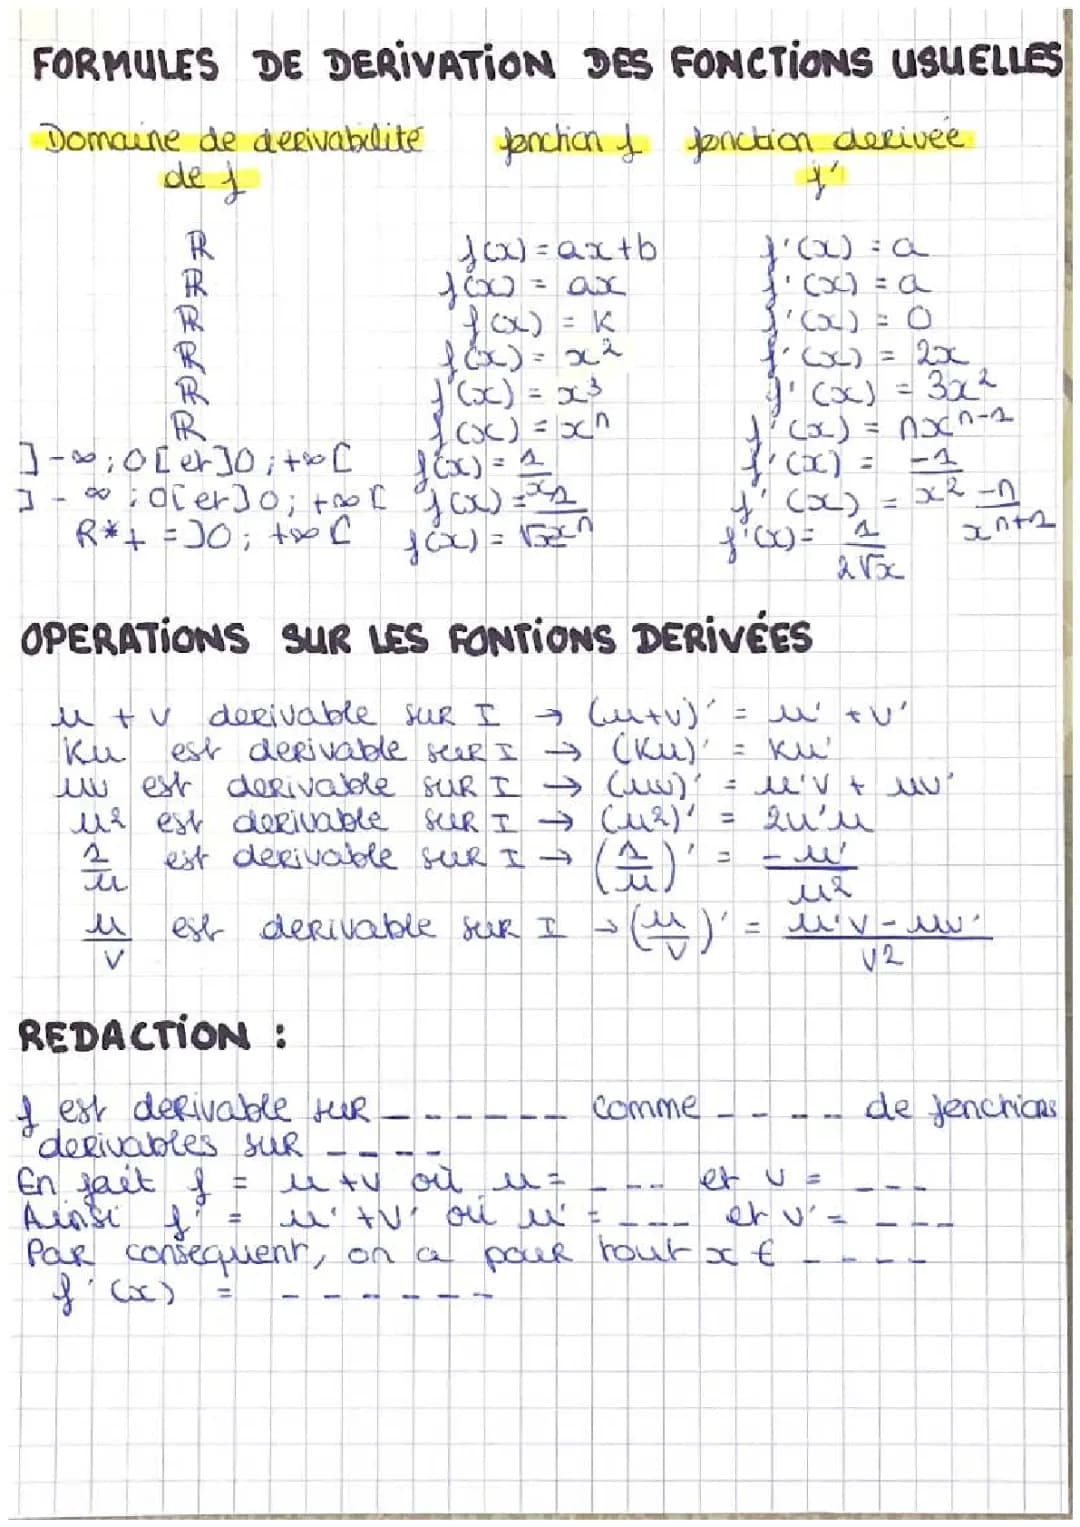 FORMULES DE DERIVATION DES FONCTIONS USUELLES
Domaine de derivabilite fonction f fonction derivée
de f f'
ℝ f(x) = ax+b f'(x) = a
ℝ f(x) = ax f'(x) = a
ℝ f(x) = K f'(x) = 0
ℝ f(x) = x² f'(x) = 2x
ℝ f(x) = x³ f'(x) = 3x²
ℝ f(x) = xⁿ f'(x) = nxⁿ⁻¹
]-∞;0[ et ]0;+∞[ f(x) = 1/x f'(x) = -1/x²
]-∞;0[ et ]0;+∞[ f(x) = 1/xⁿ f'(x) = -n/xⁿ⁺¹
R*+ = ]0;+∞[ f(x) = √x f'(x) = 1/2√x
OPERATIONS SUR LES FONTIONS DERIVÉES
u + v derivable sur I → (u+v)' = u' + v'
Ku est derivable sur I → (Ku)' = Ku'
uv est derivable sur I → (uv)' = u'v + uv'
u² est derivable sur I → (u²)' = 2u'u
1/u est derivable sur I → (1/u)' = -u'/u²
u/v est derivable sur I → (u/v)' = u'v - uv'/v²
REDACTION :
f est derivable sur ------ comme ----- de fonctions
derivables sur ----
En fait f = u+v où u = ---- et v = ---
Ainsi f' = u'+v' où u' = ---- et v' = ---
Par consequent, on a pour tout x ∈ ----
f'(x) = -------